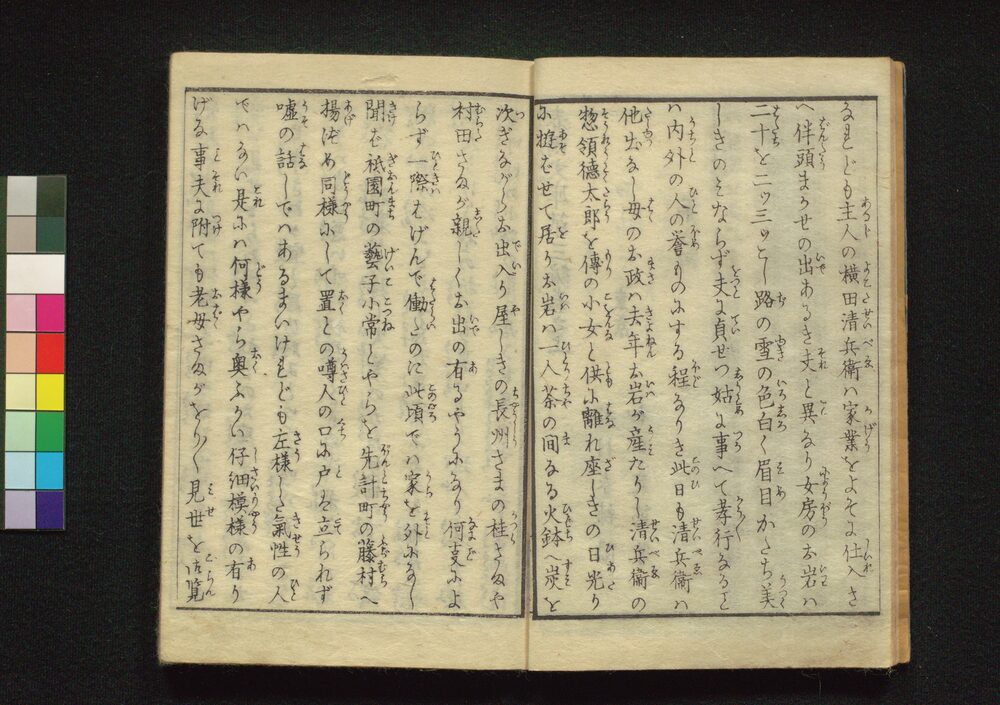 なれども主人の横田清兵衛ハ家業をよそに仕入さ
へ伴頭まかせの出あるき丈と異なり女房のお岩ハ
二十を二ッ三ッこし路の雪の色白く眉目かたち美
しきのミならず夫に貞せつ姑に事へて孝行なると
ハ内外の人の誉ものにする程なりき此日も清兵衛ハ
他出なし母のお政ハ去年お岩が産たりし清兵衛の
惣領徳太郎を傳の小女と供に離れ座しきの日光り
に遊ばせて居りお岩ハ一人茶の間なる火鉢へ炭を
次ぎながらお出入り屋しきの長州さまの桂さまや
村田さまが親しくお出の有るやうになり何事によ
らず一際はげんで働くのに此頃でハ家を外になし
聞ば祇園町の藝子小常とやらを先斗町の藤村へ
揚づめ同様にして置との噂人の口に戸ハ立られず
嘘の話しでハあるまいけれども左様した氣性の人
でハない是にハ何様やら奥ふかい仔細模様の有り
げな事夫に附ても老母さまがをり〳〵見世を御覧